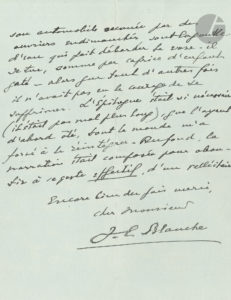 son automobile secouée par des
ouvriers endimanchés — sont la goutte
d'eau qui fait déborder le vase. il
se tue, comme par caprice d'enfant
gâté — alors que tant d'autres fois
il n'avait pas eu le courage de se
supprimer. L'Epilogue était si nécessaire
(il était pas mal plus long) que l'ayant
d'abord ôté, tout le monde m'a
forcé à le réintégrer. Au fond, la
narration était composée pour
à ce geste effectif, d'un velléitaire
Encore bien des fois merci,
cher Monsieur
J-E. Blanche